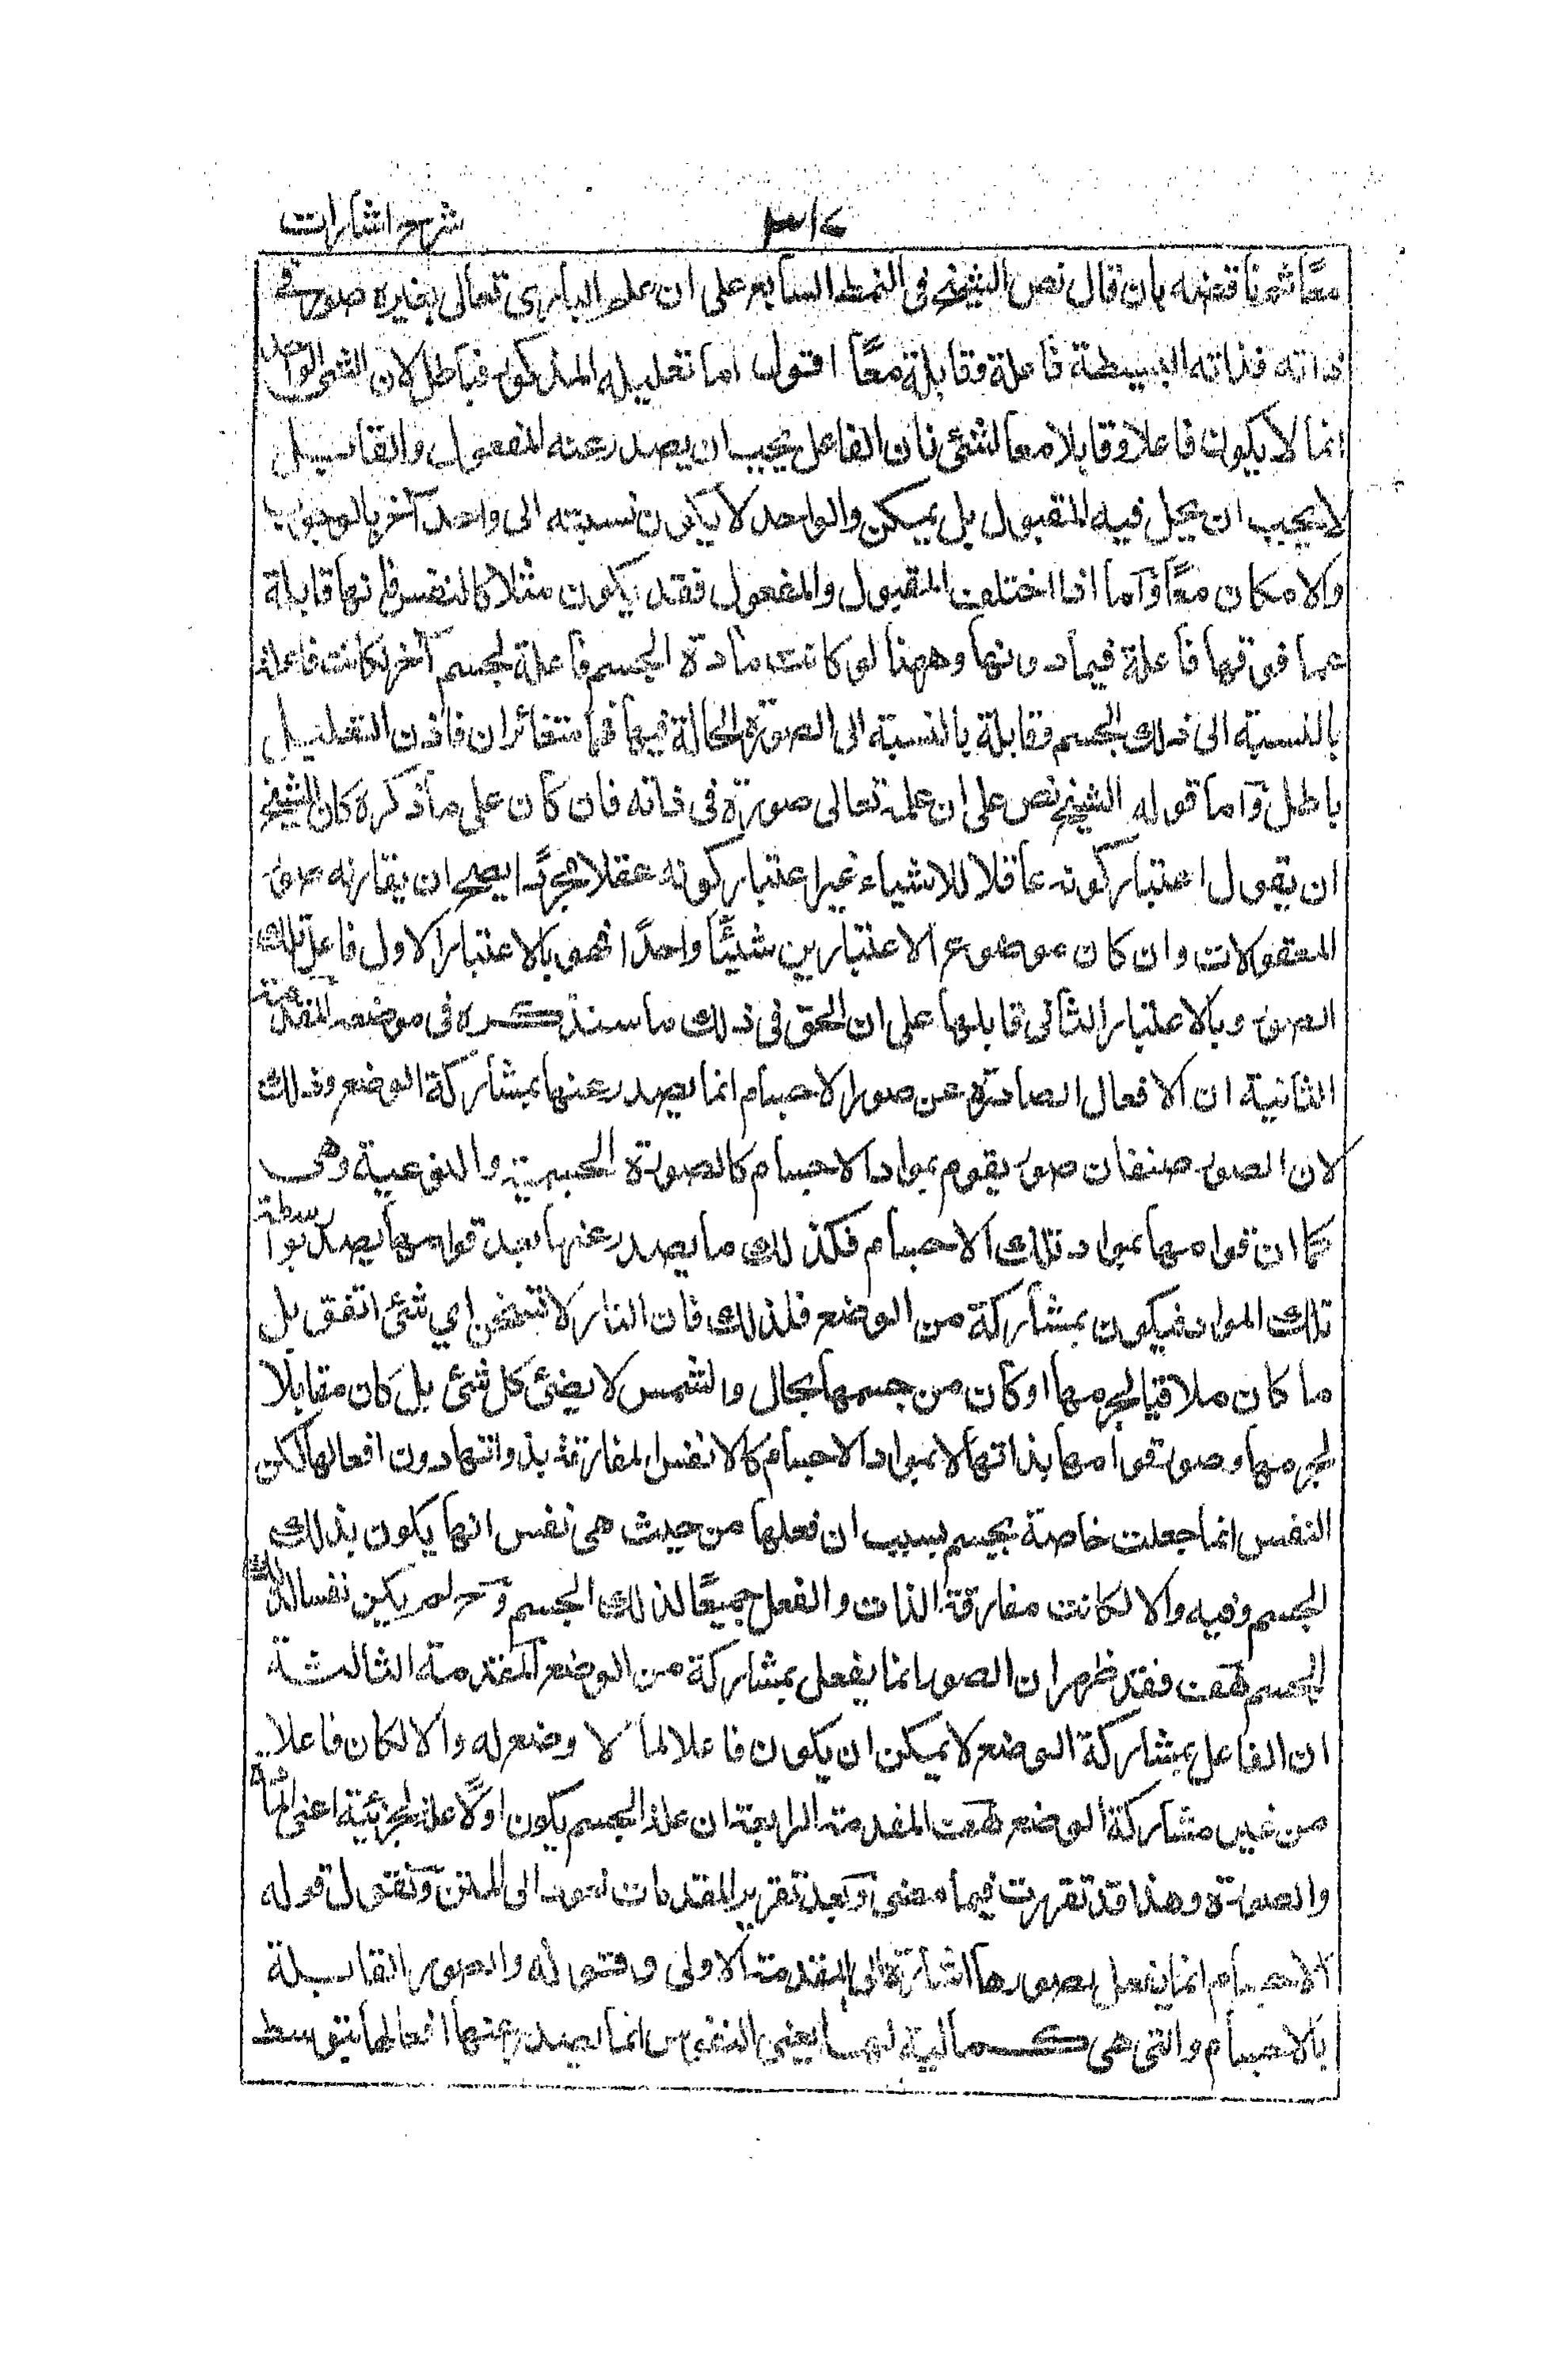 شرح اشارات
معًا ثم ناقضه بان قال نص الشيخ فى النمط السابع على ان علم البارى تعالى بغيره صورة فى
ذاته فذاته البسيطة فاعلة وقابلة معًا اقول اما تعليله المذكور فباطل لان الشئ الواحد
انما لا يكون فاعلا وقابلا معا لشئ فان الفاعل يجب ان يصدر عنه المفعول والقابل
لا يجب ان يحل فيه المقبول بل يمكن والواحد لا يكون نسبته الى واحد آخر بالوجوب
والامكان معًا وآما اذا اختلف المقبول والمفعول فقد يكون مثلا كالنفس فانها قابلة
عما فوقها فاعلة فيما دونها وههنا لو كانت مادة الجسم فاعلة لجسم آخر لكانت فاعلة
بالنسبة الى ذلك الجسم وقابلة بالنسبة الى الصورة الحالة فيها فهما متغائران فاذن التعليل
باطل وآما قوله الشيخ نص على ان علمه تعالى صورة فى ذاته فان كان على ما ذكره كان للشيخ
ان يقول اعتبار كونه عاقلا للاشياء غير اعتبار كونه عقلا مجردًا يصح ان يقارنه صور
المعقولات وان كان موضوع الاعتبارين شيئًا واحدًا فهو بالاعتبار الاول فاعل تلك
الصور وبالاعتبار الثانى قابلها على ان الحق فى ذلك ما سنذكره فى موضعه المقدمة
الثانية ان الافعال الصادرة عن صور الاجسام انما يصدر عنها بمشاركة الوضع وذلك
لان الصور صنفان صور يقوم بمواد الاجسام كالصورة الجسمية والنوعية وهى
كما ان قوامها بمواد تلك الاجسام فكذلك ما يصدر عنها بعد قوامها يصدر بواسطة
تلك المواد فيكون بمشاركة من الوضع فلذلك فان النار لا تسخن اي شئ اتفق بل
ما كان ملاقيا لجرمها او كان من جسمها بحال والشمس لا يضئ كل شئ بل كان مقابلا
لجرمها وصور قوامها بذاتها لا بمواد الاجسام كالانفس المفارقة بذواتها دون افعالها لكن
النفس انما جعلت خاصة بجسم بسبب ان فعلها من حيث هى نفس انما يكون بذلك
الجسم وفيه والا لكانت مفارقة الذات والفعل جميعًا لذلك الجسم وح لم يكن نفسا لذلك
الجسم هف فقد ظهر ان الصور انما يفعل بمشاركة من الوضع المقدمة الثالثة
ان الفاعل بمشاركة الوضع لا يمكن ان يكون فاعلا لما لا وضع له والا لكان فاعلا
من غير مشاركة الوضع هف المقدمة الرابعة ان علة الجسم يكون اولًا علة لجزئية اعنى المادة
والصورة وهذا قد تقررت فيما مضى وبعد تقرير المقدمات نعود الى المتن ونقول قوله
الاجسام انما يفعل بصورها اشارة الى المقدمة الاولى وقوله والصور القابلة
بالاجسام والتى هى كمالية لها يعنى النفوس انما يصدر عنها افعالها بتوسط